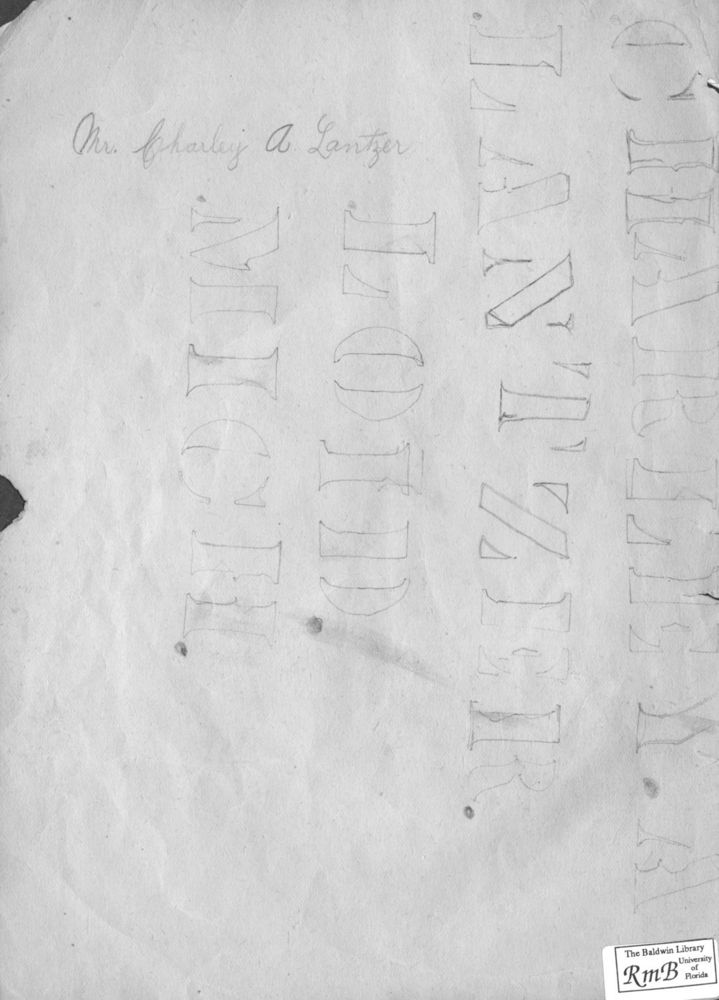 Mr. Charley A. Lantzer
CHARLEY . A
LANTZER
MICH
The Baldwin Library
RmB University of Florida